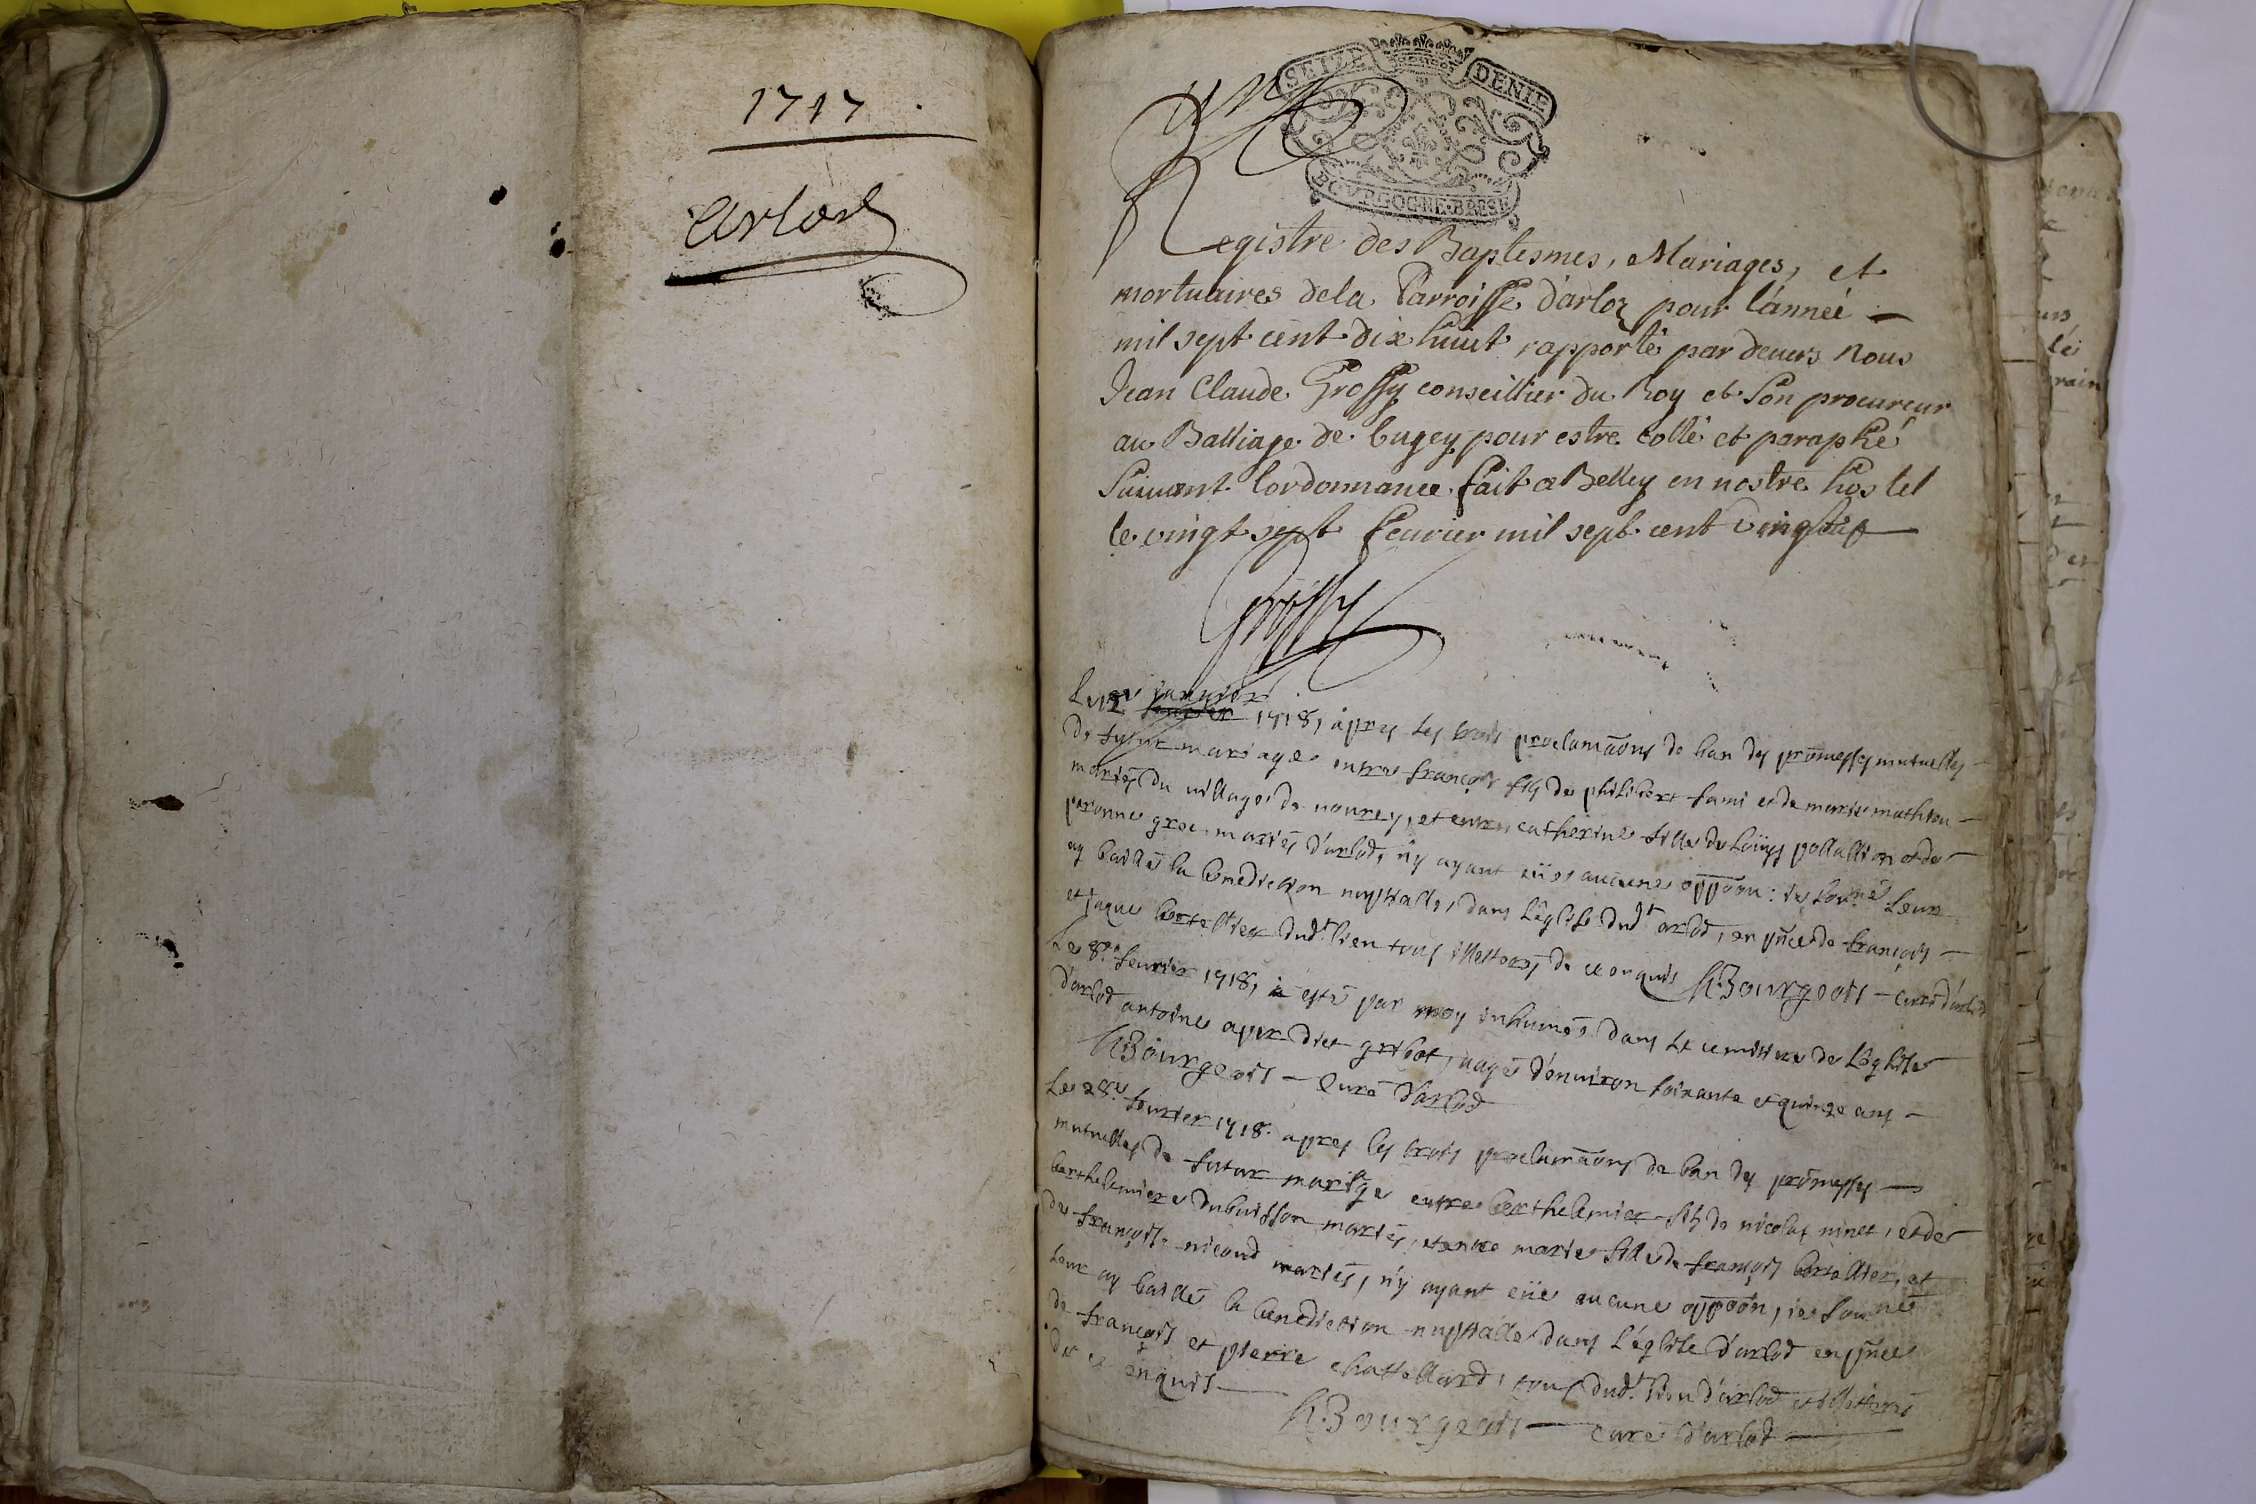 1717
arlod
SEIZE DENIE
BOURGOGNE·BRESE
Registre des Baptesmes, Mariages, et
mortuaires dela Parroisse d'arloz pour l'anneé
mil sept cent dix huict rapporté par devers nous
Jean Claude Grossy conseillier du Roy et son procureur
au Balliage de bugey pour estre cotté et paraphé
suivant lordonnance fait a Belley en nostre hostel
le vingt sept feuvrier mil sept cent
Grossy
januier
1718, apres les trois proclamãons de ban des promesses mutuelles
de futur mariage entre françois fils de philibert fami et de marie mathieu
mariés du village de vourey, et entre catherine fille de Loüys pollallion et de
peronne groc mariés d'arlod, n'y ayant eüe aucune oppõon: je leur
ay baillé la benediction nuptialle, dans l'eglise dud.t arlod, en pñce de françois
et jaque bertellier dud.t lieu tous illetteres de ce enquis N. Bourgeois curé d'arlod
Le 8.e feurier 1718, a esté par moy inhumé dans le cemitiere de l'eglise
d'arlod antoine aper dict gribot, aagé d'enuiron soixante et quinze ans
N. Bourgeois curé d'arlod
Le 28.e feurier 1718. apres les trois proclamãons de ban des promesses
mutuelles de futur mariage entre berthelemier fils de nicolas ninet, et de
berthelemiere dubuisson mariés, et entre marie fille de françois bertellier, et
de françoise nicoud mariés, n'y ayant eüe aucune oppõon, je
leur ay baillé la benediction nuptialle dans l'eglise d'arlod en pñce
de françois et pierre chattellard, tous dud.t lieu d'arlod et illetteres
de ce enquis
N. Bourgeois curé d'arlod